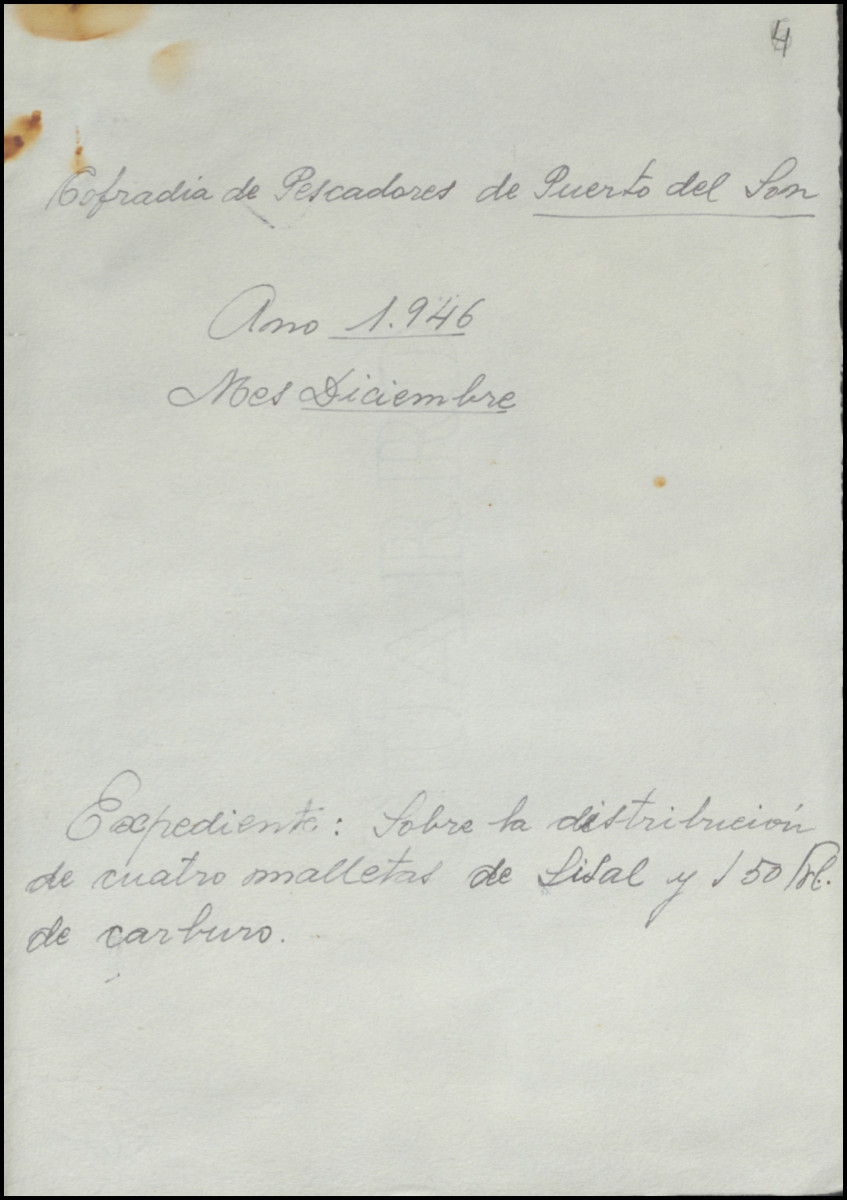 4
Cofradia de Pescadores de Puerto del Son
Ano 1.946
Mes Diciembre
Expediente: Sobre la distribución
de cuatro malletas de Sisal y 150 Kl.
de carburo.